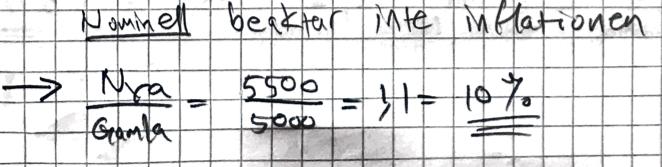 Nominell beaktar inte inflationen
→ Nya/Gamla = 5500/5000 = 1,1 = 10 %